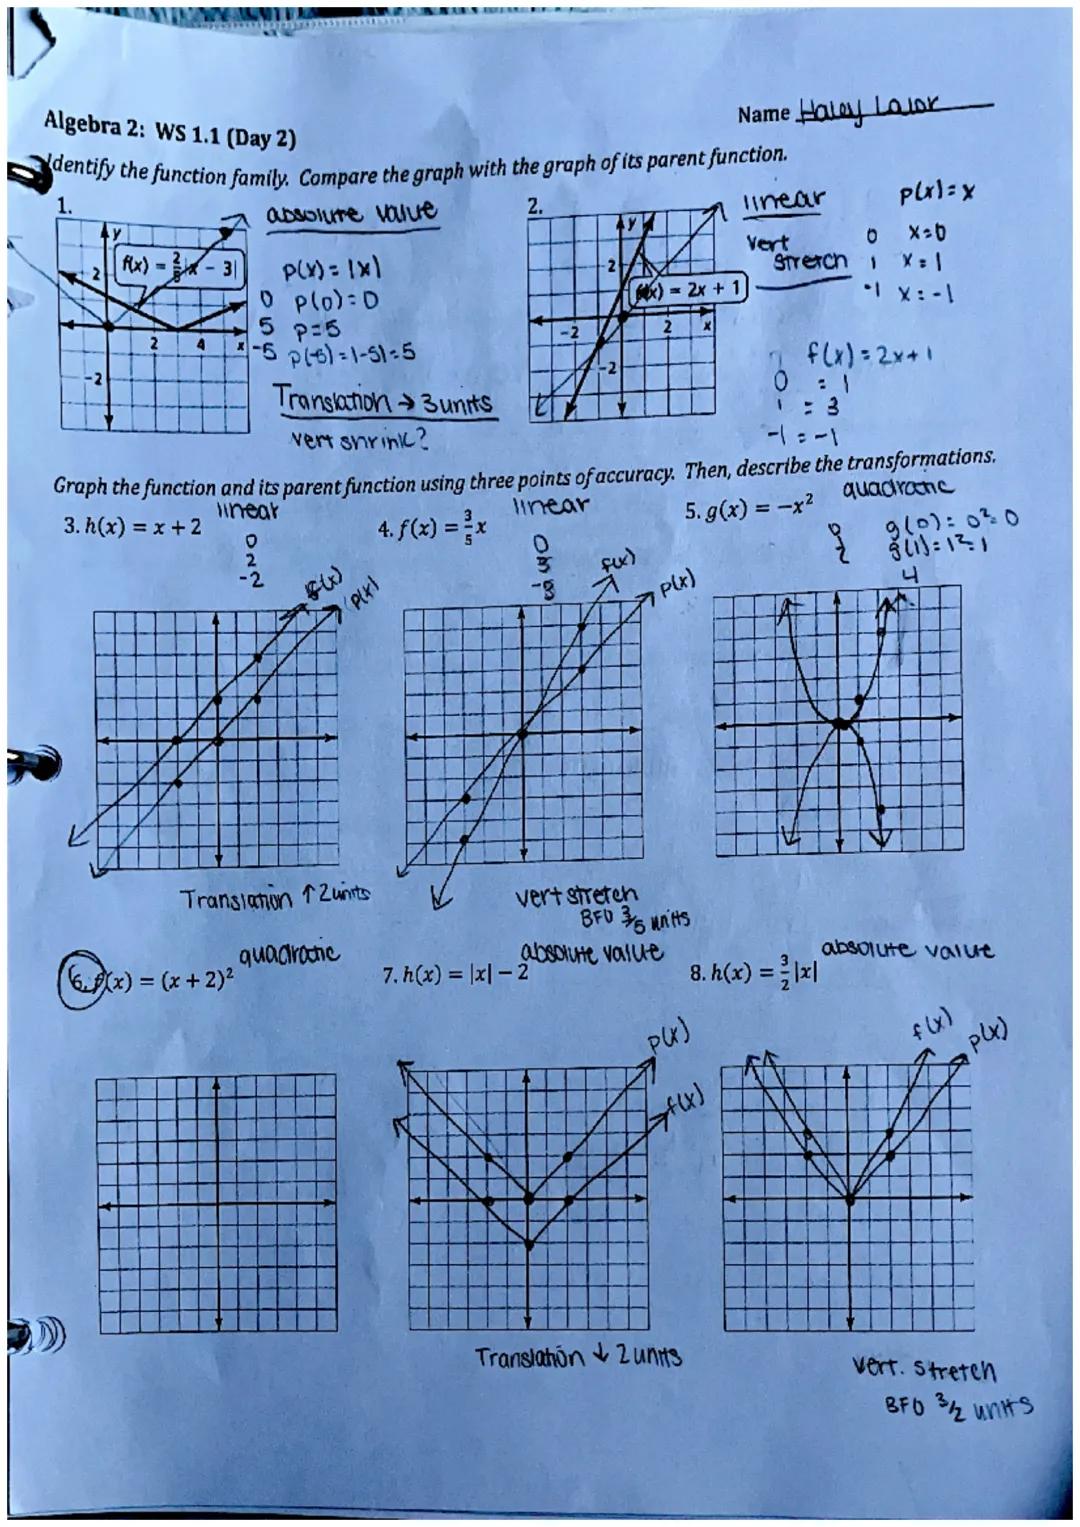 Name Haley Lalor
Algebra 2: WS 1.1 (Day 2)
Identify the function family. Compare the graph with the graph of its parent function.
1.
absolute value
y
f(x) = 2/5|x - 3|
2
2 4 x
-2
p(x) = |x|
0 p(0) = 0
5 p = 5
-5 p(-5) = |-5| = 5
Translation → 3 units
vert shrink?
2.
linear
p(x) = x
y
2
f(x) = 2x + 1
-2 2 x
-2
vert stretch
0 x = 0
1 x = 1
-1 x = -1
f(x) = 2x + 1
0 = 1
1 = 3
-1 = -1
Graph the function and its parent function using three points of accuracy. Then, describe the transformations.
3. h(x) = x + 2
linear
0
2
-2
p(x)
Translation ↑ 2 units
4. f(x) = 3/5 x
linear
0
3
-3
f(x)
p(x)
vert stretch
BFO 3/5 units
5. g(x) = -x²
quadratic
0 g(0) = 0² = 0
1 g(1) = 1² = 1
2 4
6. f(x) = (x + 2)²
quadratic
7. h(x) = |x| - 2
absolute value
p(x)
f(x)
Translation ↓ 2 units
8. h(x) = 3/2 |x|
absolute value
f(x)
p(x)
vert. stretch
BFO 3/2 units